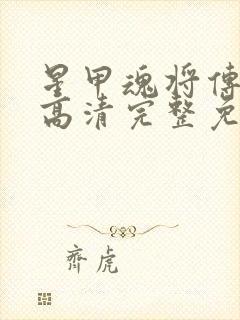 星甲魂将傳
高清完整免
齊虎